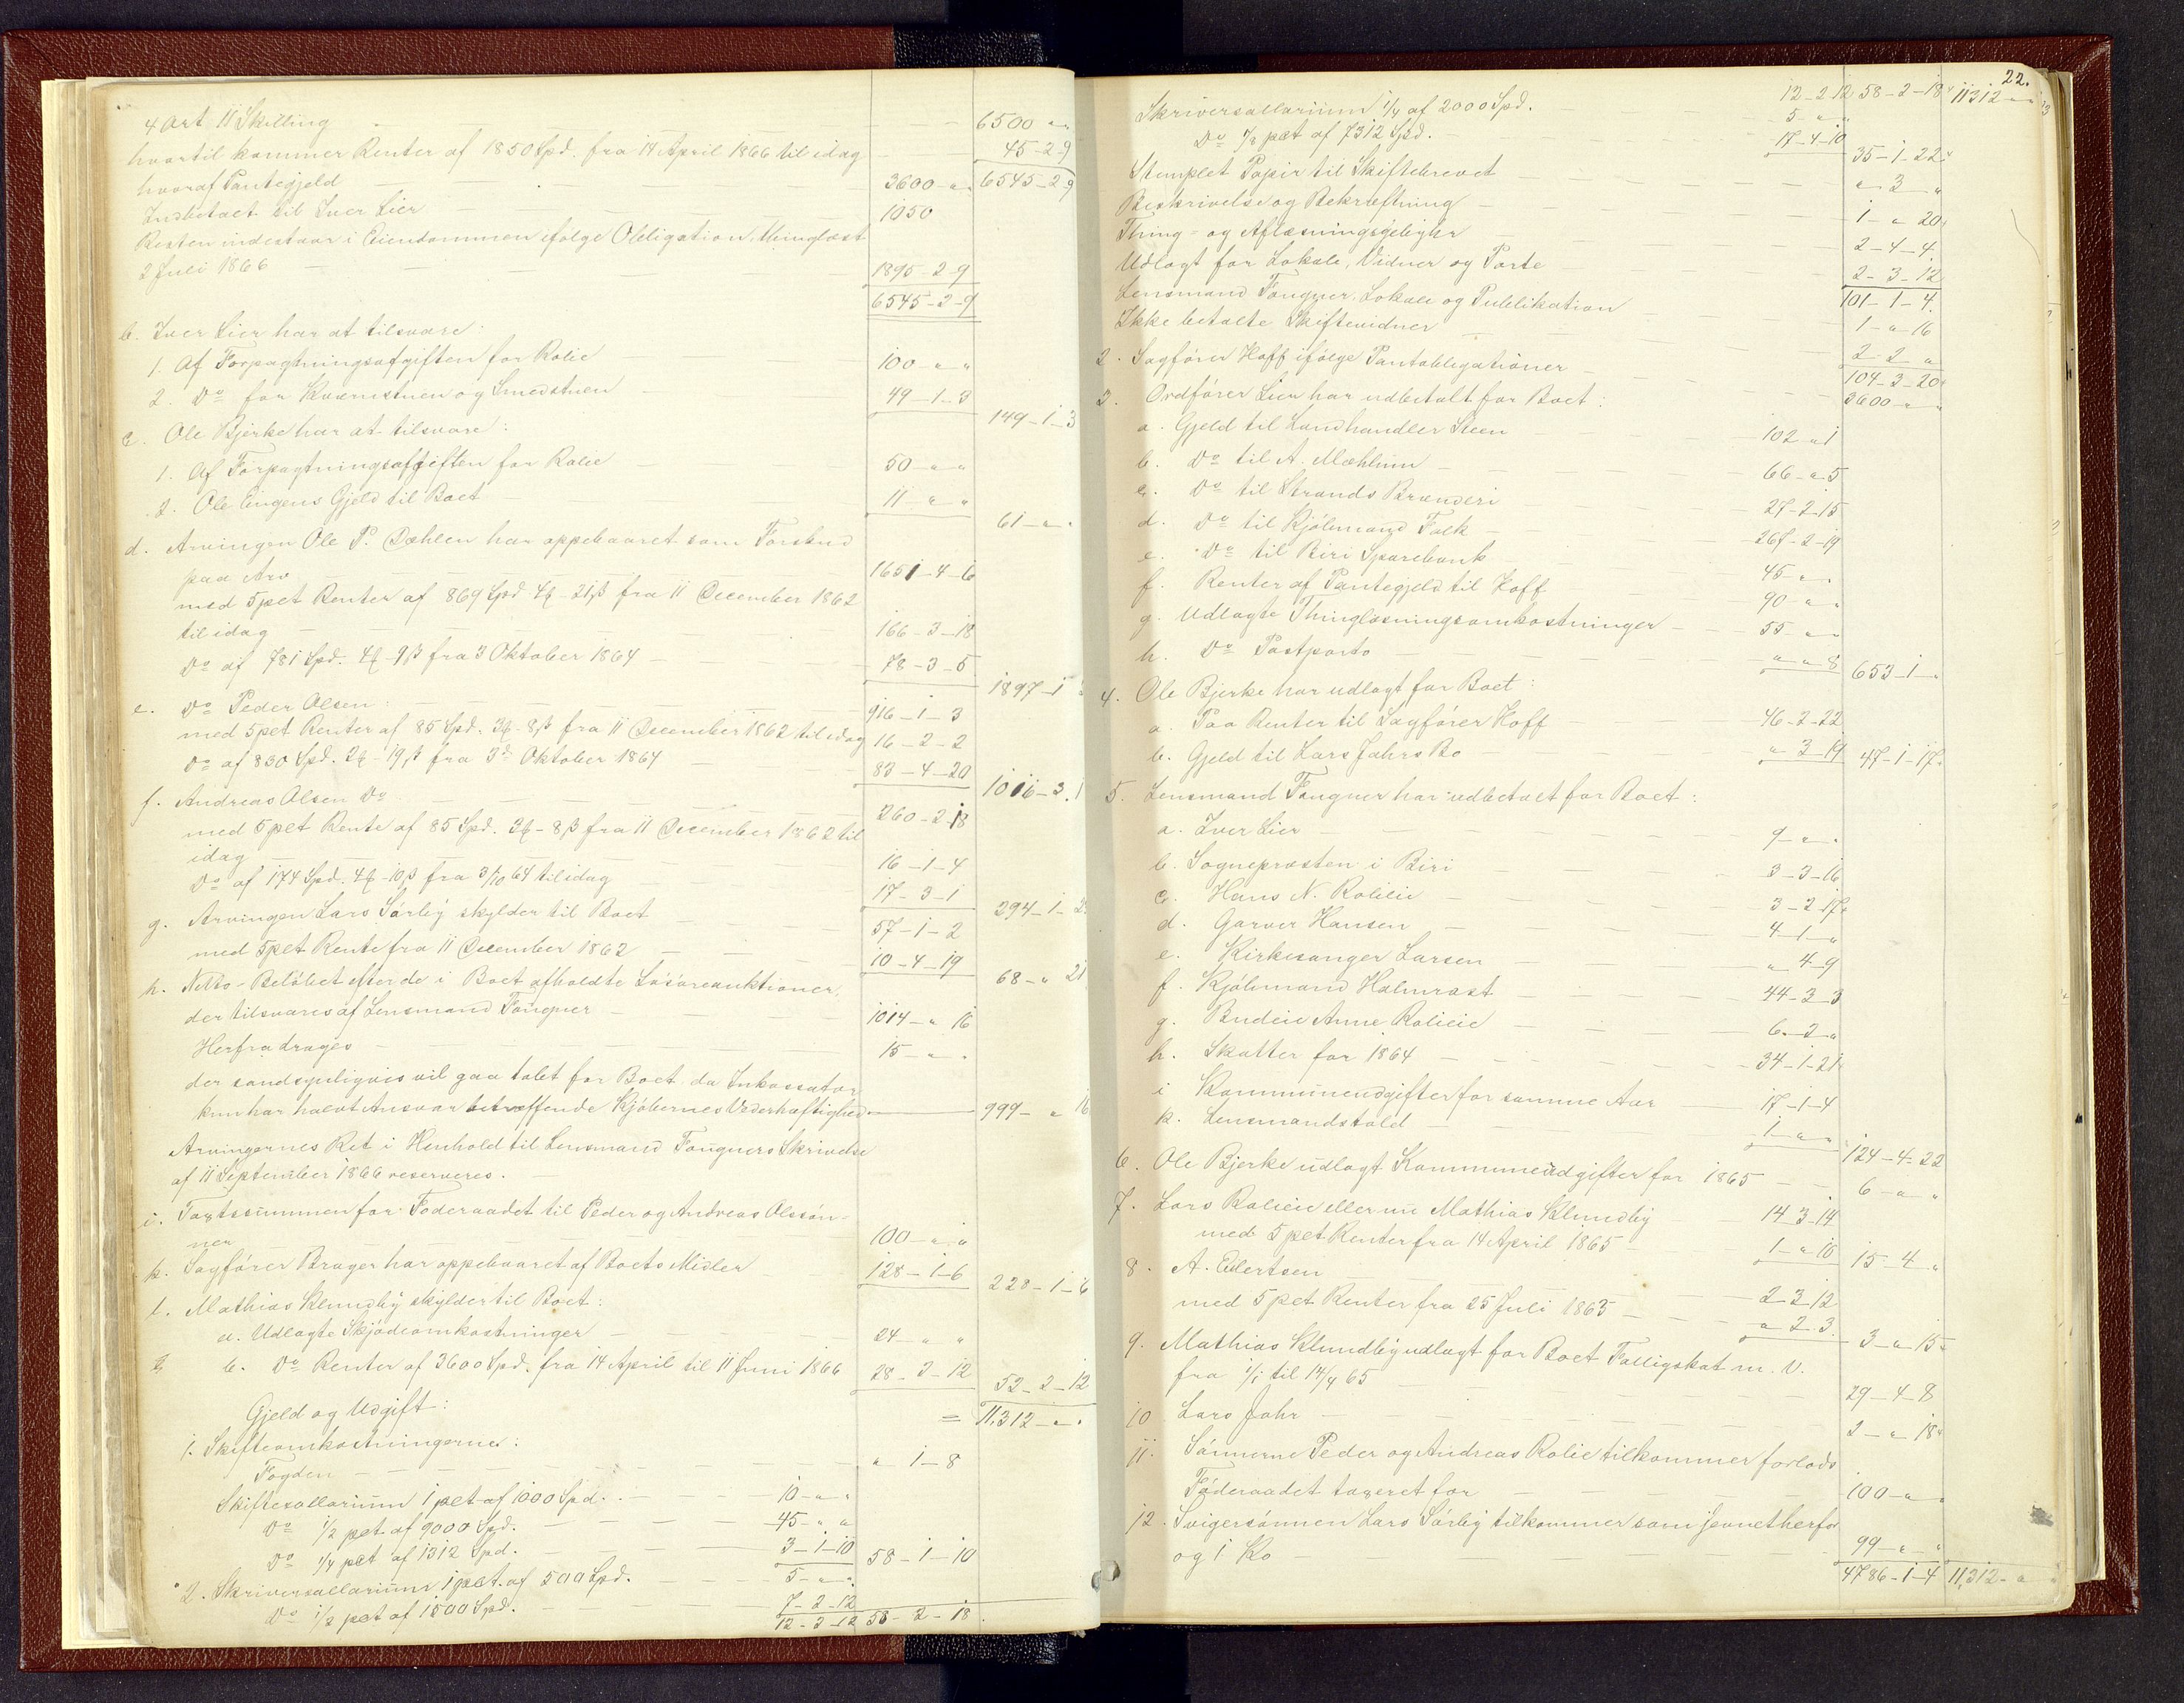 4 Ort 11 Skilling — — 6500 " "
hvortil kommer Renter af 1850 Spd. fra 14 April 1866 til idag — — 45-2-9
hvoraf Pantegjeld — — 3600-"-" 6545-2-9
Indbetalt til Iver Lier — 1050
Resten indestaar i Eiendommen ifølge Obligation, thinglæst
2 Juli 1866 — — 1895-2-9
6545-2-9
b. Iver Lier har at tilsvare:
1. Af Forpagtningsafgiften for Rolie — 100-"-"
2. Do for Kværnstuen og Smedstuen — 49-1-3
149-1-3
c. Ole Bjerke har at tilsvare:
1. Af Forpagtningsafgiften for Rolie — 50-"-"
2. Ole Engens Gjeld til Boet — 11-"-"
61-"-"
d. Arvingen Ole P. Dæhlen har oppebaaret som Forskud
paa Arv — 1651-4-6
med 5 pct Renter af 869 Spd 4 ₰ - 21 β fra 11 December 1862
til idag — 166-3-18
Do af 781 Spd. 4 ₰ - 9 β fra 3 Oktober 1864 — 78-3-5
1897-1
e. Do Peder Olsen: — 916-1-3
med 5 pct Renter af 85 Spd. 3 ₰ - 8 β fra 11 December 1862 til idag 16-2-2
Do af 830 Spd. 2 ₰ - 19 β fra 3die Oktober 1864 — 83-4-20
1016-3-1
f. Andreas Olsen Do — 260-2-18
med 5 pct Rente af 85 Spd. 3 ₰ - 8 β fra 11 December 1862 til
idag — 16-1-4
Do af 174 Spd. 4 ₰ - 10 β fra 3/10 64 til idag — 17-3-1
294-1-
g. Arvingen Lars Sørby skylder til Boet — 57-1-2
med 5 pct Rente fra 11 December 1862 — 10-4-19
68-"-21
h. Netto-Beløbet efter de i Boet afholdte Løsøreauktioner,
der tilsvares af Lensmand Fougner — 1014-"-16
Herfra drages — 15-"-"
der sandsynligvis vil gaa tabt for Boet da Inkassator
kun har halvt Ansvar betræffende Kjøbernes Vederhæftighed — 999-"-16
Arvingernes Ret i Henhold til Lensmand Fougners Skrivelse
af 11 September 1866 reserveres. —
i. Taxtsummen for Føderaadet til Peder og Andreas Olssøn-
ner — 100-"-"
k. Sagfører Brager har oppebaaret af Boets Midler — 128-1-6
228-1-6
l. Mathias Klundby skylder til Boet:
a. Udlagte Skjødeomkostninger — 24-"-"
b. Do Renter af 3600 Spd. fra 14 April til 11 Juni 1866 28-2-12
52-2-12
Gjeld og Udgift: = 11,312-"-"
1. Skifteomkostningerne:
Fogden — — " 1-8
Skiftesallarium 1 pct af 1000 Spd. — 10-"-"
Do 1/2 pct af 9000 Spd. — 45-"-"
Do 1/4 pct af 1312 Spd. — 3-1-10 58-1-10
2. Skriversallarium 1 pct. af 500 Spd. — 5-"-"
Do 1/2 pct af 1500 Spd. — 7-2-12
12-2-12 58-2-18
22.
12-2-12 58-2-18 11312-"-"
Skriversallarium 1/4 af 2000 Spd. — 5-"-"
Do 1/8 pct af 7312 Spd. — 17-4-10
35-1-22
Stemplet Papir til Skiftebrevet — "-3-"
Beskrivelse og Bekræftning — 1-"-20
Thing- og Aflæsningsgebyhr — 2-4-4
Udlagt for Lokale, Vidner og Porto — 2-3-12
101-1-4
Lensmand Fougner, Lokale og Publikation — 1-"-16
Ikke betalte Skiftevidner — 2-2-"
104-3-20
2. Sagfører Hoff ifølge Pantobligationer — 3600-"-"
3. Ordfører Lier har udbetalt for Boet:
a. Gjeld til Landhandler Steen — 102-"-1
b. Do til A. Mæhlum — 66-"-5
c. Do til Strands Brænderi — 27-2-15
d. Do til Kjøbmand Falk — 267-2-19
e. Do til Biri Sparebank — 45-"-"
f. Renter af Pantegjeld til Hoff — 90-"-"
g. Udlagte Thinglæsningsomkostninger — 55-"-"
h. Do Postporto — "-"-8 653-1-"
4. Ole Bjerke har udlagt for Boet:
a. Paa Renter til Sagfører Hoff — 46-2-22
b. Gjeld til Lars Jahrs Bo — "-3-19 47-1-17
5. Lensmand Fougner har udbetalt for Boet:
a. Iver Lier — 9-"-"
b. Sognepræsten i Biri — 3-3-16
c. Hans N. Rolieie — 3-2-17
d. Garver Hansen — 4-1-"
e. Kirkesanger Larsen — "-4-9
f. Kjøbmand Halmrast — 44-3-3
g. Budeie Anne Rolieie — 6-2-"
h. Skatter for 1864 — 34-1-21
i Kommuneudgifter for samme Aar — 17-1-4
k. Lensmandstold — 1-"-" 124-4-22
6. Ole Bjerke udlagt Kommuneudgifter for 1865 — 6-"-"
7. Lars Rolieie eller nu Mathias Klundby — 14-3-14
med 5 pct Renter fra 14 April 1865 — 1-"-10 15-4-"
8. A. Eilertsen — 2-3-12
med 5 pct Renter fra 25 Juli 1863 — "-2-3 3-"-15
9. Mathias Klundby udlagt for Boet Fattigskat m. V.
fra 1/1 til 14/4 65 — 29-4-8
10 Lars Jahr — 2-"-18
11. Sønnerne Peder og Andreas Rolie tilkommer forlods
Føderaadet taxeret for — 100-"-"
12. Svigersønnen Lars Sørby tilkommer som jevnet herfor
og 1 Ko — 99-"-"
4786-1-4 11,312-"-"